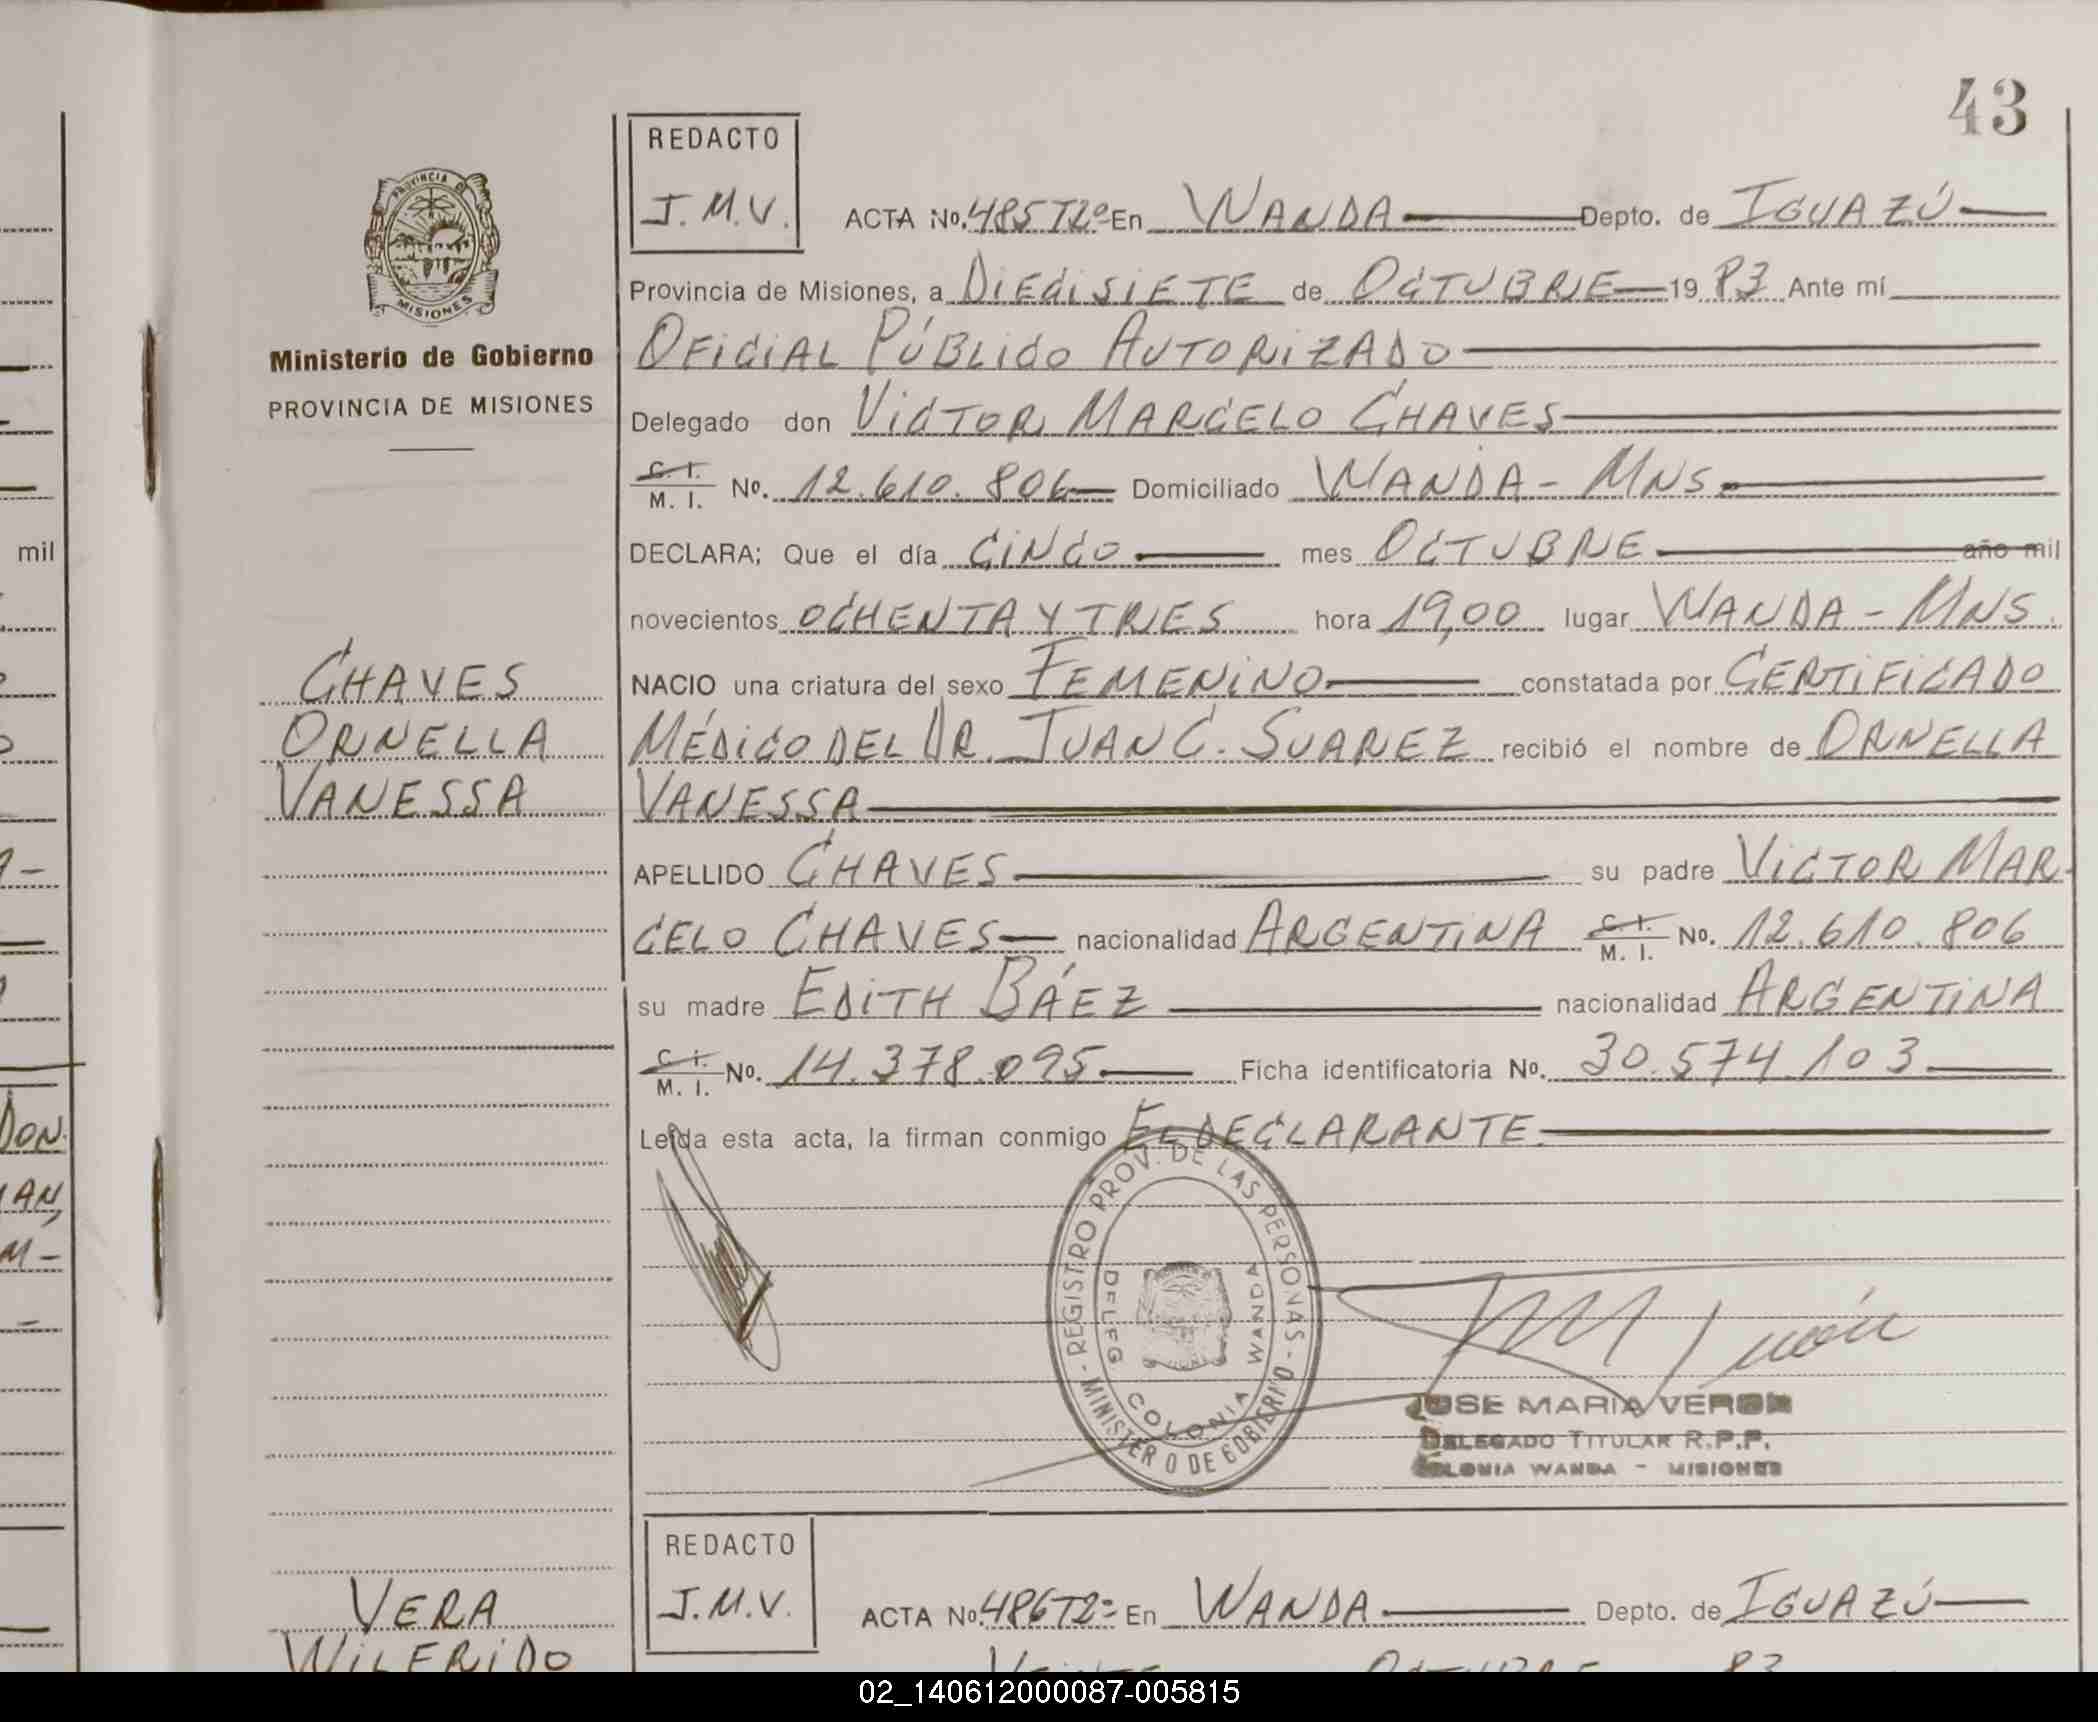 43
REDACTO
J. M. V.
ACTA No. 485 T2º En WANDA Depto. de IGUAZÚ
PROVINCIA DE MISIONES
Provincia de Misiones, a DIECISIETE de OCTUBRE 1983 Ante mí
OFICIAL PÚBLICO AUTORIZADO
Ministerio de Gobierno
PROVINCIA DE MISIONES
Delegado don VICTOR MARCELO CHAVES
C. I.
M. I. No. 12.610.806 Domiciliado WANDA - MNS.
DECLARA; Que el día CINCO mes OCTUBRE año mil
novecientos OCHENTA Y TRES hora 19,00 lugar WANDA - MNS.
CHAVES
ORNELLA
VANESSA
NACIO una criatura del sexo FEMENINO constatada por CERTIFICADO
MÉDICO DEL DR. JUAN C. SUAREZ recibió el nombre de ORNELLA
VANESSA
APELLIDO CHAVES su padre VICTOR MAR-
CELO CHAVES nacionalidad ARGENTINA C. I. M. I. No. 12.610.806
su madre EDITH BÁEZ nacionalidad ARGENTINA
C. I.
M. I. No. 14.378.095 Ficha identificatoria No. 30.574.103
Leída esta acta, la firman conmigo EL DECLARANTE.
REGISTRO PROV. DE LAS PERSONAS - MINISTERIO DE GOBIERNO
DELEG COLONIA WANDA
JOSE MARIA VERON
DELEGADO TITULAR R.P.P.
COLONIA WANDA - MISIONES
REDACTO
J. M. V.
ACTA No. 486 T2º En WANDA Depto. de IGUAZÚ
VERA
WILFRIDO
83
mil
DON
AN,
M-
02_140612000087-005815